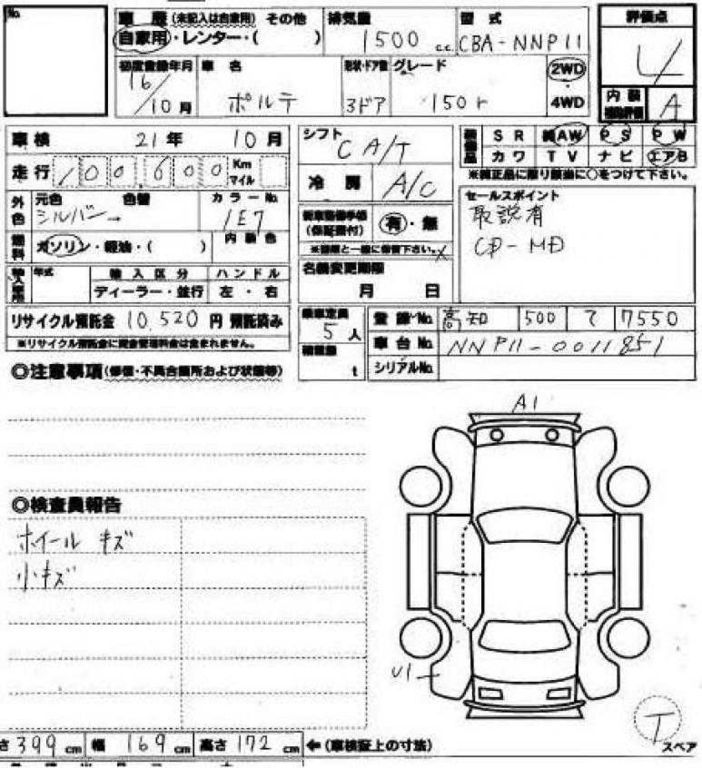 No.
車歴 (未記入は自家用) その他
自家用・レンター・( )
排気量 1500 c.c.
型式 CBA-NNP11
評価点 4
初度登録年月 16/10月
車名 ポルテ
形状・ドア数 3ドア
グレード 150r
2WD
4WD
内装補助評価 A
車検 21年 10月
シフト CA/T
装備品 SR 純AW PS PW
カワ TV ナビ エアB
※純正品に限り該当に○をつけて下さい。
走行 100,600 Km マイル
冷房 A/C
外色 元色 シルバー 色替 カラーNo. 1E7
セールスポイント
取説有
CD-MD
新車整備手帳(保証書付) 有・無
※書類と一緒に保管下さい。
燃料 ガソリン・軽油・( ) 内装色
名義変更期限
月 日
輸入車 年式 輸入区分 ハンドル
ディーラー・並行 左・右
リサイクル預託金 10,520 円 預託済み
※リサイクル預託金に資金管理料金は含まれません。
乗車定員 5人
積載量 t
登録No. 高知 500 て 7550
車台No. NNP11-0011851
シリアルNo.
◎注意事項(修復・不具合箇所および状態等)
A1
◎検査員報告
ホイール キズ
小キズ
U1
T
スペア
さ 399 cm 幅 169 cm 高さ 172 cm ←(車検証上の寸法)